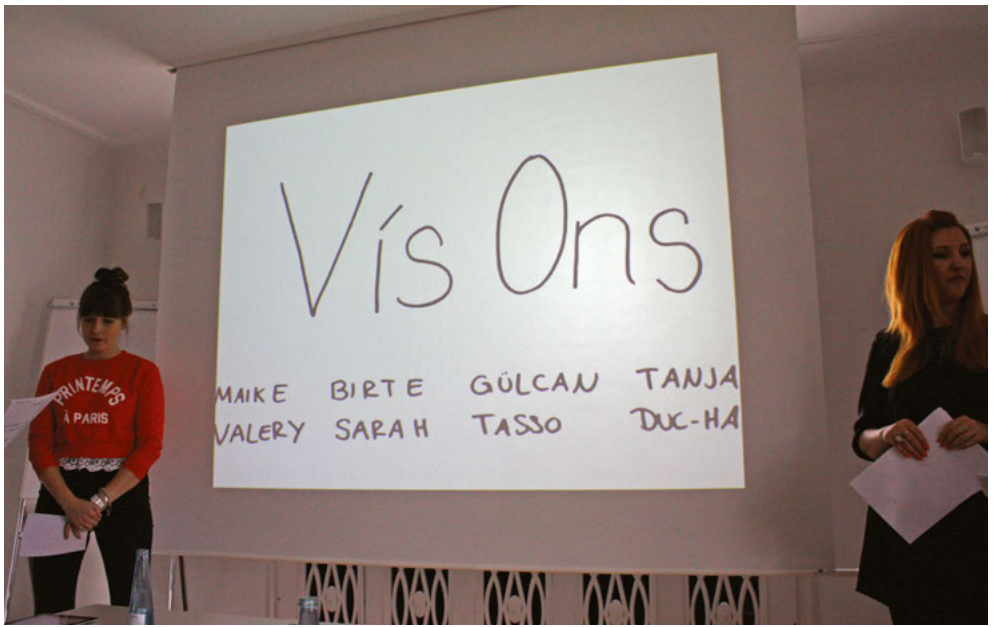 Vís Ons
MAIKE BIRTE GÜLCAN TANJA
VALERY SARAH TASSO DUC-HA
PRINTEMPS
À PARIS